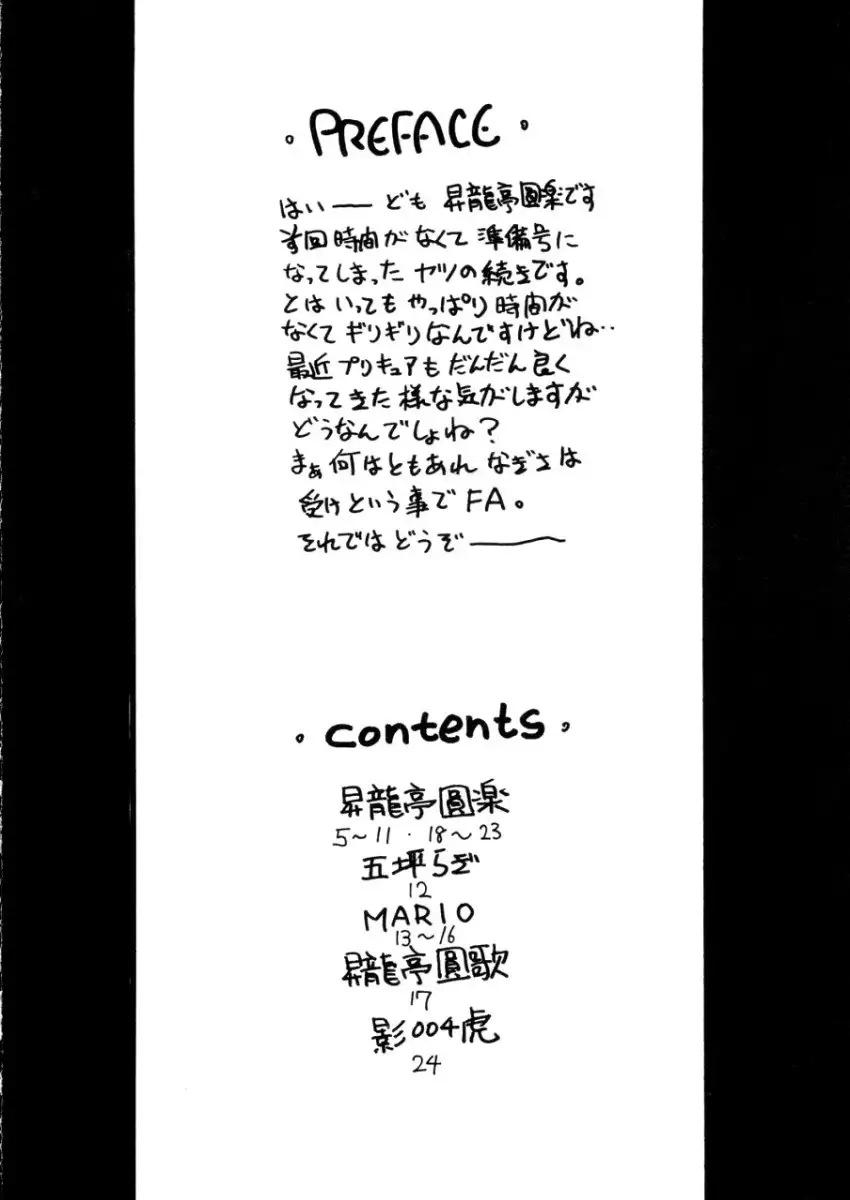 PREFACE
はい──ども 昇龍亭圓楽です
前回時間がなくて準備号に
なってしまったヤツの続きです。
とはいってもやっぱり時間が
なくてギリギリなんですけどね‥
最近プリキュアもだんだん良く
なってきた様な気がしますが
どうなんでしょね?
まぁ何はともあれ なぎさは
受けという事でFA。
それではどうぞ───
contents
昇龍亭圓楽
5~11・18~23
五坪らぎ
12
MARIO
13~16
昇龍亭圓歌
17
影004虎
24